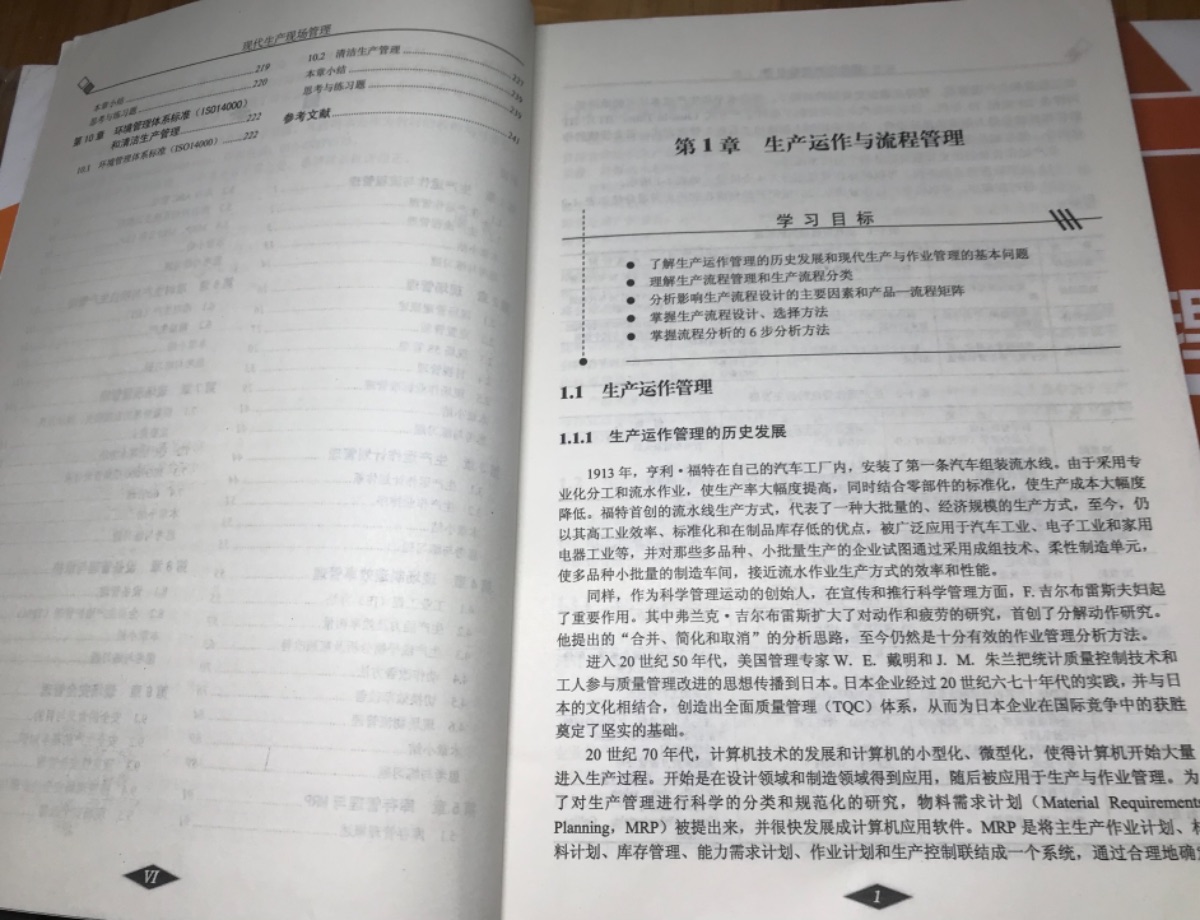 现代生产现场管理
本章小结 219
思考与练习题 220
第10章 环境管理体系标准（ISO14000）
和清洁生产管理 222
10.1 环境管理体系标准（ISO14000） 222
10.2 清洁生产管理 227
本章小结 239
思考与练习题 239
参考文献 241
VI
第1章 生产运作与流程管理
学习目标
● 了解生产运作管理的历史发展和现代生产与作业管理的基本问题
● 理解生产流程管理和生产流程分类
● 分析影响生产流程设计的主要因素和产品—流程矩阵
● 掌握生产流程设计、选择方法
● 掌握流程分析的6步分析方法
1.1 生产运作管理
1.1.1 生产运作管理的历史发展
1913年，亨利·福特在自己的汽车工厂内，安装了第一条汽车组装流水线。由于采用专
业化分工和流水作业，使生产率大幅度提高，同时结合零部件的标准化，使生产成本大幅度
降低。福特首创的流水线生产方式，代表了一种大批量的、经济规模的生产方式，至今，仍
以其高工业效率、标准化和在制品库存低的优点，被广泛应用于汽车工业、电子工业和家用
电器工业等，并对那些多品种、小批量生产的企业试图通过采用成组技术、柔性制造单元，
使多品种小批量的制造车间，接近流水作业生产方式的效率和性能。
同样，作为科学管理运动的创始人，在宣传和推行科学管理方面，F. 吉尔布雷斯夫妇起
了重要作用。其中弗兰克·吉尔布雷斯扩大了对动作和疲劳的研究，首创了分解动作研究。
他提出的“合并、简化和取消”的分析思路，至今仍然是十分有效的作业管理分析方法。
进入20世纪50年代，美国管理专家W. E. 戴明和J. M. 朱兰把统计质量控制技术和
工人参与质量管理改进的思想传播到日本。日本企业经过20世纪六七十年代的实践，并与日
本的文化相结合，创造出全面质量管理（TQC）体系，从而为日本企业在国际竞争中的获胜
奠定了坚实的基础。
20世纪70年代，计算机技术的发展和计算机的小型化、微型化，使得计算机开始大量
进入生产过程。开始是在设计领域和制造领域得到应用，随后被应用于生产与作业管理。为
了对生产管理进行科学的分类和规范化的研究，物料需求计划（Material Requirements
Planning，MRP）被提出来，并很快发展成计算机应用软件。MRP是将主生产作业计划、材
料计划、库存管理、能力需求计划、作业计划和生产控制联结成一个系统，通过合理地确定
1